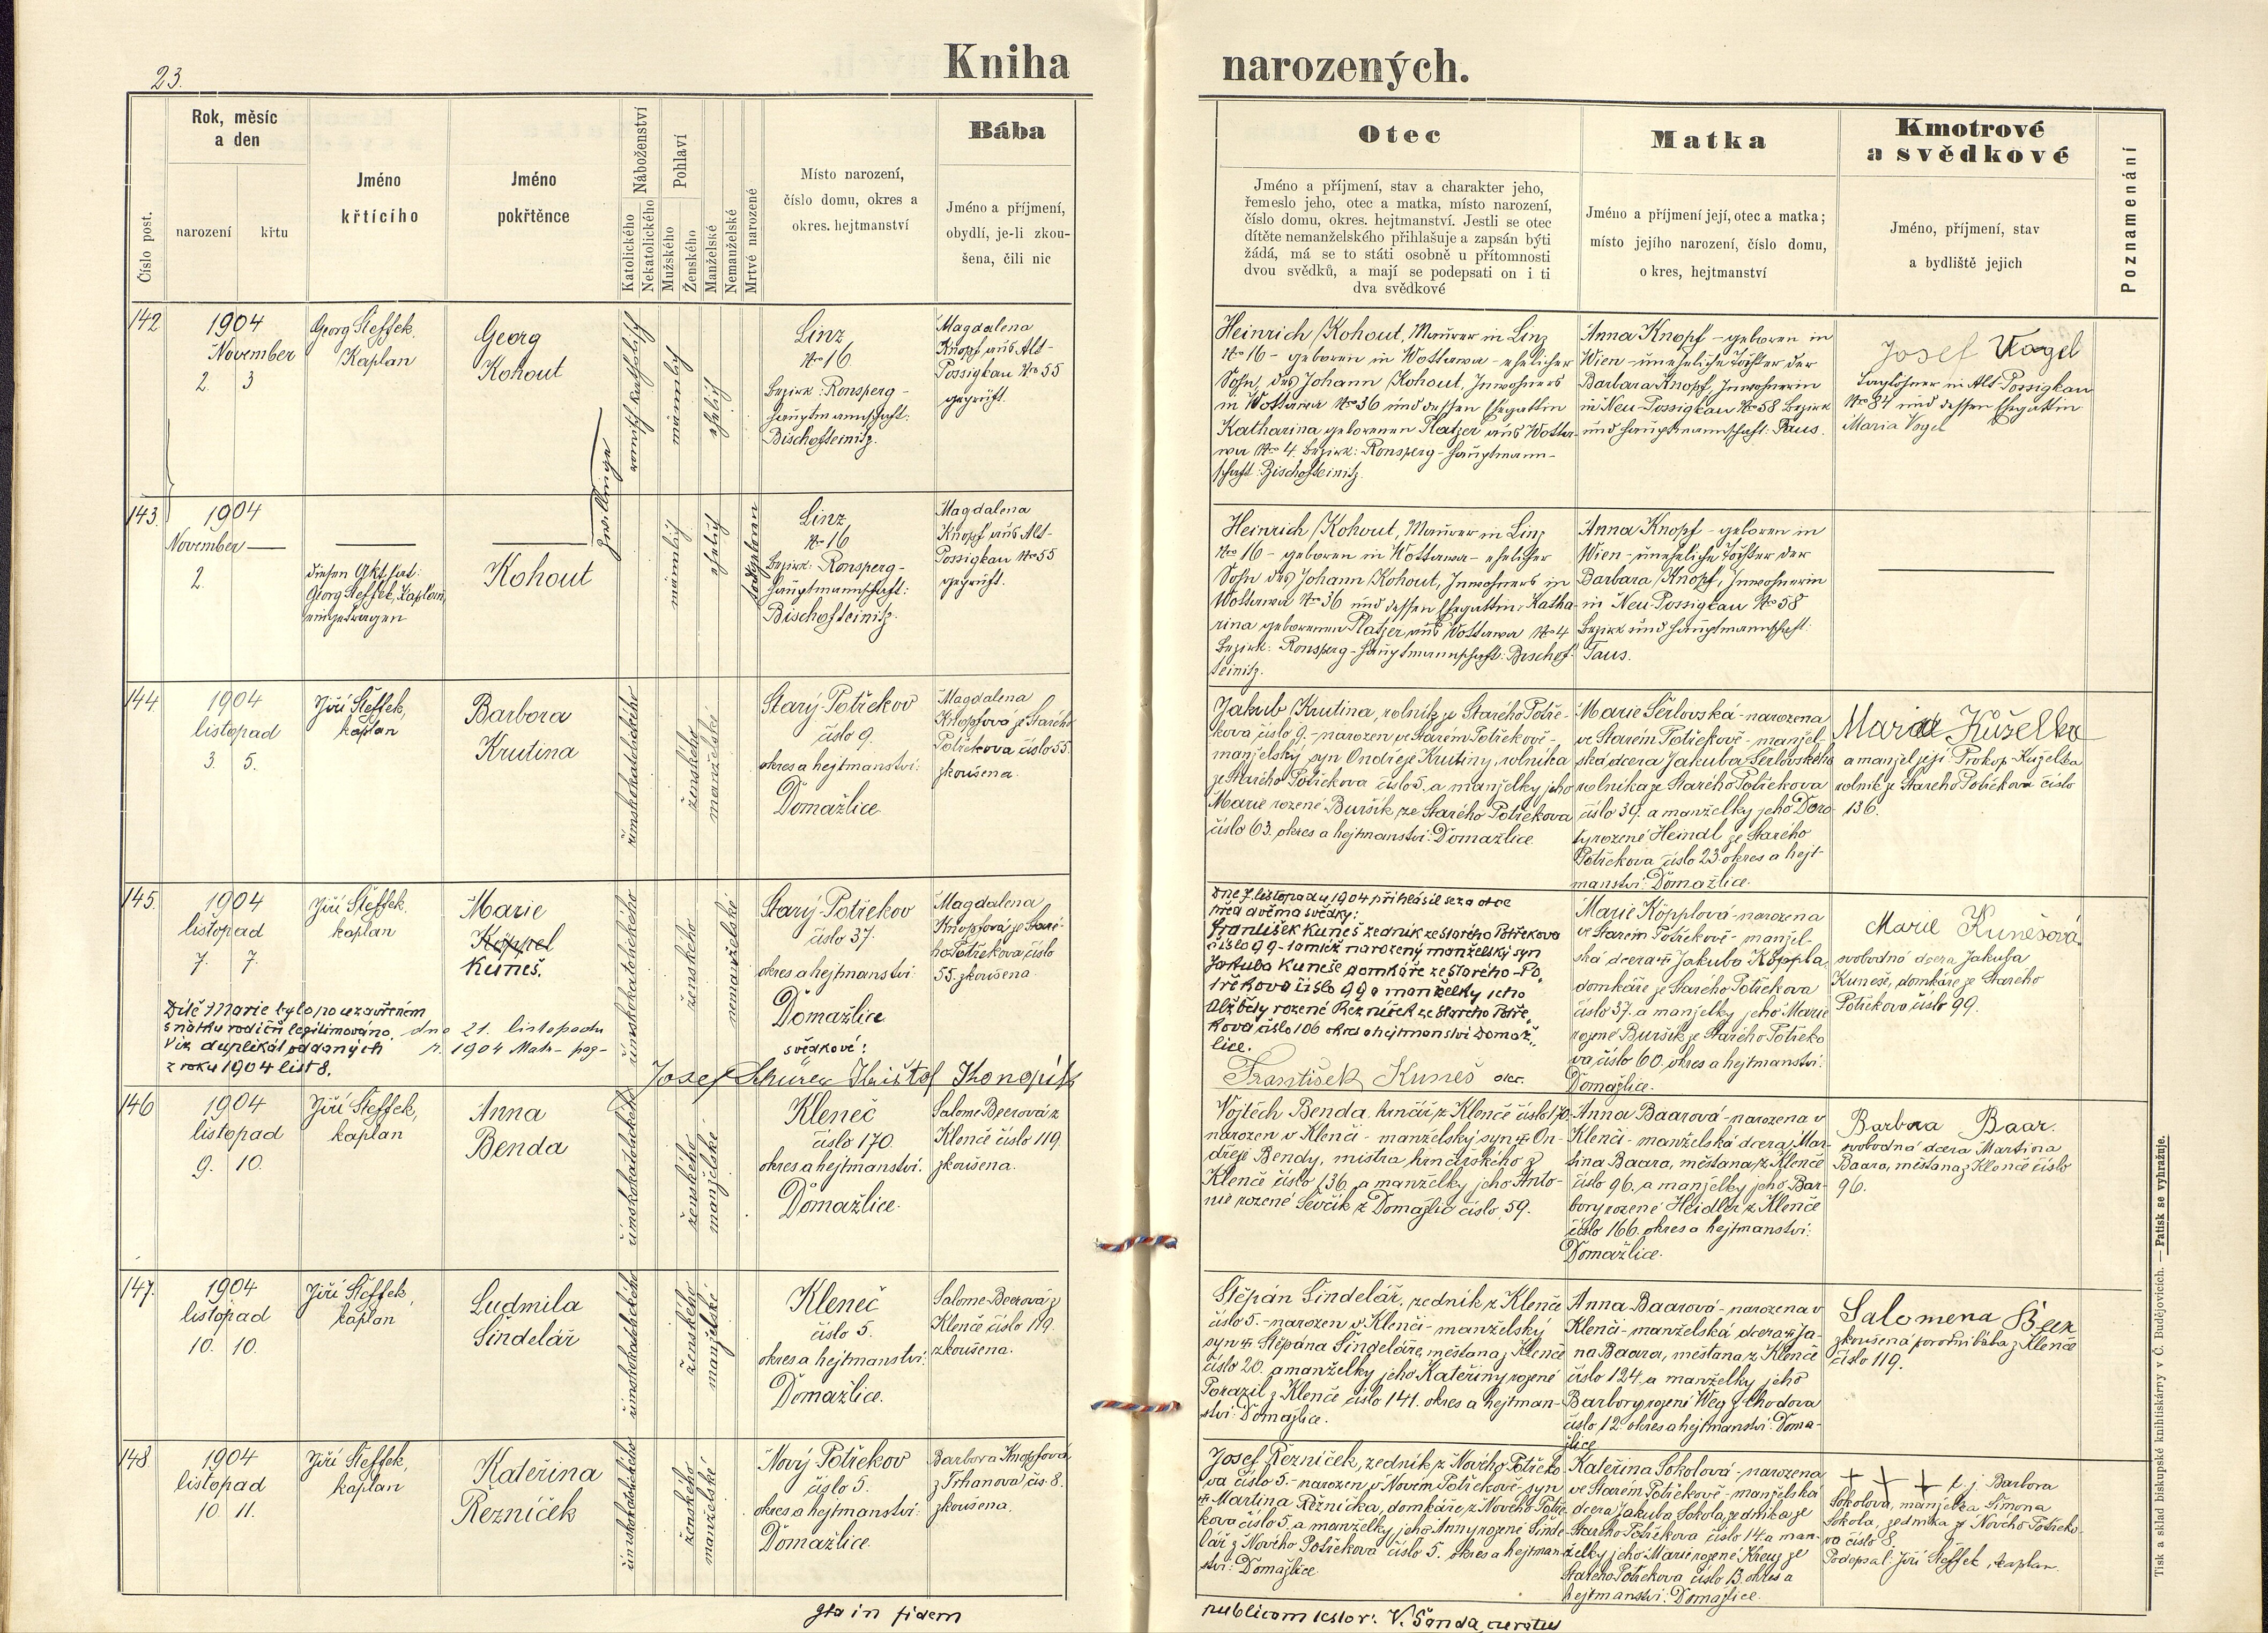 23.
Kniha
narozených.
Číslo post.
Rok, měsíc
a den
narození
křtu
Jméno
křtícího
Jméno
pokřtěnce
Náboženství
Katolického
Nekatolického
Pohlaví
Mužského
Ženského
Manželské
Nemanželské
Mrtvě narozené
Místo narození,
číslo domu, okres a
okres. hejtmanství
Bába
Jméno a příjmení,
obydlí, je-li zkou-
šena, čili nic
Otec
Jméno a příjmení, stav a charakter jeho,
řemeslo jeho, otec a matka, místo narození,
číslo domu, okres. hejtmanství. Jestli se otec
dítěte nemanželského přihlašuje a zapsán býti
žádá, má se to státi osobně u přítomnosti
dvou svědků, a mají se podepsati on i ti
dva svědkové
Matka
Jméno a příjmení její, otec a matka;
místo jejího narození, číslo domu,
okres, hejtmanství
Kmotrové
a svědkové
Jméno, příjmení, stav
a bydliště jejich
Poznamenání
142
1904
November
2. 3
Georg Steffek,
Kaplan
Georg
Kohout
Zwillinge
römisch katholisch
männlich
ehelich
Linz
No 16
Bezirk: Ronsperg-
Hauptmannschaft:
Bischofteinitz.
Magdalena
Knopf aus Alt-
Possigkau No 55
geprüft.
Heinrich Kohout, Maurer in Linz
No 16 - geboren in Wottawa - ehelicher
Sohn des Johann Kohout, Inwohners
in Wottawa No 36 und dessen Ehegattin
Katharina geborenen Platzer aus Wotta-
wa No 4 Bezirk: Ronsperg - Hauptmann-
schaft: Bischofteinitz.
Anna Knopf - geboren in
Wien - uneheliche Tochter der
Barbara Knopf, Inwohnerin
in Neu-Possigkau No 58 Bezirk
und Hauptmannschaft: Taus.
Josef Vogel
Taglöhner in Alt-Possigkau
No 84 und dessen Ehegattin
Maria Vogel
143.
1904
November
2.
diesen Akt hat:
Georg Steffek, Kaplan,
eingetragen
Kohout
männlich
ehelich
todtgeboren
Linz
No 16
Bezirk: Ronsperg-
Hauptmannschaft:
Bischofteinitz.
Magdalena
Knopf aus Alt-
Possigkau No 55
geprüft.
Heinrich Kohout, Maurer in Linz
No 16 - geboren in Wottawa - ehelicher
Sohn des Johann Kohout, Inwohners in
Wottawa No 36 und dessen Ehegattin Katha-
rina geborenen Platzer aus Wottawa No 4
Bezirk: Ronsperg - Hauptmannschaft: Bischof-
teinitz.
Anna Knopf - geboren in
Wien - uneheliche Tochter der
Barbara Knopf, Inwohnerin
in Neu-Possigkau No 58
Bezirk und Hauptmannschaft:
Taus.
144.
1904
listopad
3. 5.
Jiří Steffek,
kaplan
Barbora
Krutina
římskokatolického
ženského
manželské
Starý-Potřekov
číslo 9.
okres a hejtmanství:
Domažlice.
Magdalena
Knopfová ze Starého
Potřekova číslo 55.
zkoušena.
Jakub Krutina, rolník ze Starého Potře-
kova číslo 9. - narozen ve Starém Potřekově -
manželský syn Ondřeje Krutiny, rolníka
ze Starého Potřekova číslo 5. a manželky jeho
Marie rozené Buršík ze Starého Potřekova
číslo 63. okres a hejtmanství: Domažlice.
Marie Šerlovská - narozena
ve Starém Potřekově - manžel-
ská dcera Jakuba Šerlovského
rolníka ze Starého Potřekova
číslo 39. a manželky jeho Doro-
ty rozené Heindl ze Starého
Potřekova číslo 23. okres a hejt-
manství: Domažlice.
Marie Kuželka
a manžel její Prokop Kuželka
rolník ze Starého Potřekova číslo
136.
145.
1904
listopad
7. 7.
Jiří Steffek,
kaplan
Marie
Köppel
Kuneš.
Dítě Marie bylo po uzavřeném
sňatku rodičů legitimováno. dne 21. listopadu
Viz duplikát oddaných r. 1904 Matr- pag-
z roku 1904 list 8.
římskokatolického
ženského
nemanželské
Starý-Potřekov
číslo 37.
okres a hejtmanství:
Domažlice
svědkové:
Josef Kryštof Konopík
Magdalena
Knopfová ze Staré-
ho Potřekova, číslo
55. zkoušena.
Dne 7. listopadu 1904 přihlásil se za otce
před dvěma svědky:
František Kuneš zedník ze Starého Potřekova
číslo 99 - tamtéž narozený manželský syn
Jakuba Kuneše domkáře ze Starého - Po-
třekova číslo 99 a manželky jeho
Alžběty rozené Rezníček ze Starého Potře-
kova, číslo 106 okres a hejtmanství Domaž-
lice.
František Kuneš otec.
Marie Köpplová - narozena
ve Starém Potřekově - manžel-
ská dcera Jakuba Köppla,
domkáře ze Starého Potřekova
číslo 37. a manželky jeho Marie
rozené Buršík ze Starého Potřeko-
va číslo 60. okres a hejtmanství:
Domažlice.
Marie Kunešová
svobodná dcera Jakuba
Kuneše, domkáře ze Starého
Potřekova číslo 99.
146
1904
listopad
9. 10.
Jiří Steffek,
kaplan
Anna
Benda
římskokatolického
ženského
manželské
Kleneč
číslo 170.
okres a hejtmanství:
Domažlice.
Salome Beerová z
Klenče číslo 119.
zkoušena.
Vojtěch Benda, hrnčíř z Klenče číslo 170.
narozen v Klenči - manželský syn On-
dřeje Bendy, mistra hrnčířského z
Klenče číslo 136 a manželky jeho Anto-
nie rozené Ševčík z Domažlic číslo 59.
Anna Baarová - narozena v
Klenči - manželská dcera Mar-
tina Baara, měšťana z Klenče
číslo 96. a manželky jeho Bar-
bory rozené Heidler z Klenče
číslo 166. okres a hejtmanství:
Domažlice.
Barbora Baar.
svobodná dcera Martina
Baara, měšťana z Klenče číslo
96.
147.
1904
listopad
10. 10.
Jiří Steffek,
kaplan
Ludmila
Šindelář
římskokatolického
ženského
manželské
Kleneč
číslo 5.
okres a hejtmanství:
Domažlice.
Salome Beerová z
Klenče číslo 119.
zkoušena.
Štěpán Šindelář, zedník z Klenče
číslo 5. - narozen v Klenči - manželský
syn Štěpána Šindeláře, měšťana z Klenče
číslo 20. a manželky jeho Kateřiny rozené
Porazil z Klenče číslo 141. okres a hejtman-
ství: Domažlice.
Anna Baarová - narozena v
Klenči - manželská dcera Ja-
na Baara, měšťana z Klenče
číslo 124. a manželky jeho
Barbory rozené Weg z Chodova
číslo 12. okres a hejtmanství: Doma-
žlice.
Salomena Beer
zkoušená porodní bába z Klenče
číslo 119.
148
1904
listopad
10 11.
Jiří Steffek,
kaplan
Kateřina
Řezníček
římskokatolického
ženského
manželské
Nový Potřekov
číslo 5.
okres a hejtmanství:
Domažlice.
Barbora Knopfová
z Trhanova čís 8.
zkoušena.
Josef Řezníček, zedník z Nového Potřeko-
va číslo 5. - narozen v Novém Potřekově - syn
Martina Řezníčka, domkáře z Nového Potře-
kova číslo 5. a manželky jeho Anny rozené Šinde-
lář z Nového Potřekova číslo 5. okres a hejtman-
ství: Domažlice.
Kateřina Sokolová - narozena
ve Starém Potřekově - manželská
dcera Jakuba Sokola, zedníka ze
Starého Potřekova číslo 14. a man-
želky jeho Marie rozené Kreuz ze
Starého Potřekova číslo 13. okres a
hejtmanství: Domažlice.
+ + + t. j. Barbora
Sokolová, manželka Šimona
Sokola, zedníka z Nového Potřeko-
va číslo 8.
Podepsal: Jiří Steffek, kaplan.
in fidem
publicam testor: V. Šanda, curatus
Tisk a sklad biskupské knihtiskárny v Č. Budějovicích. — Patisk se vyhražuje.